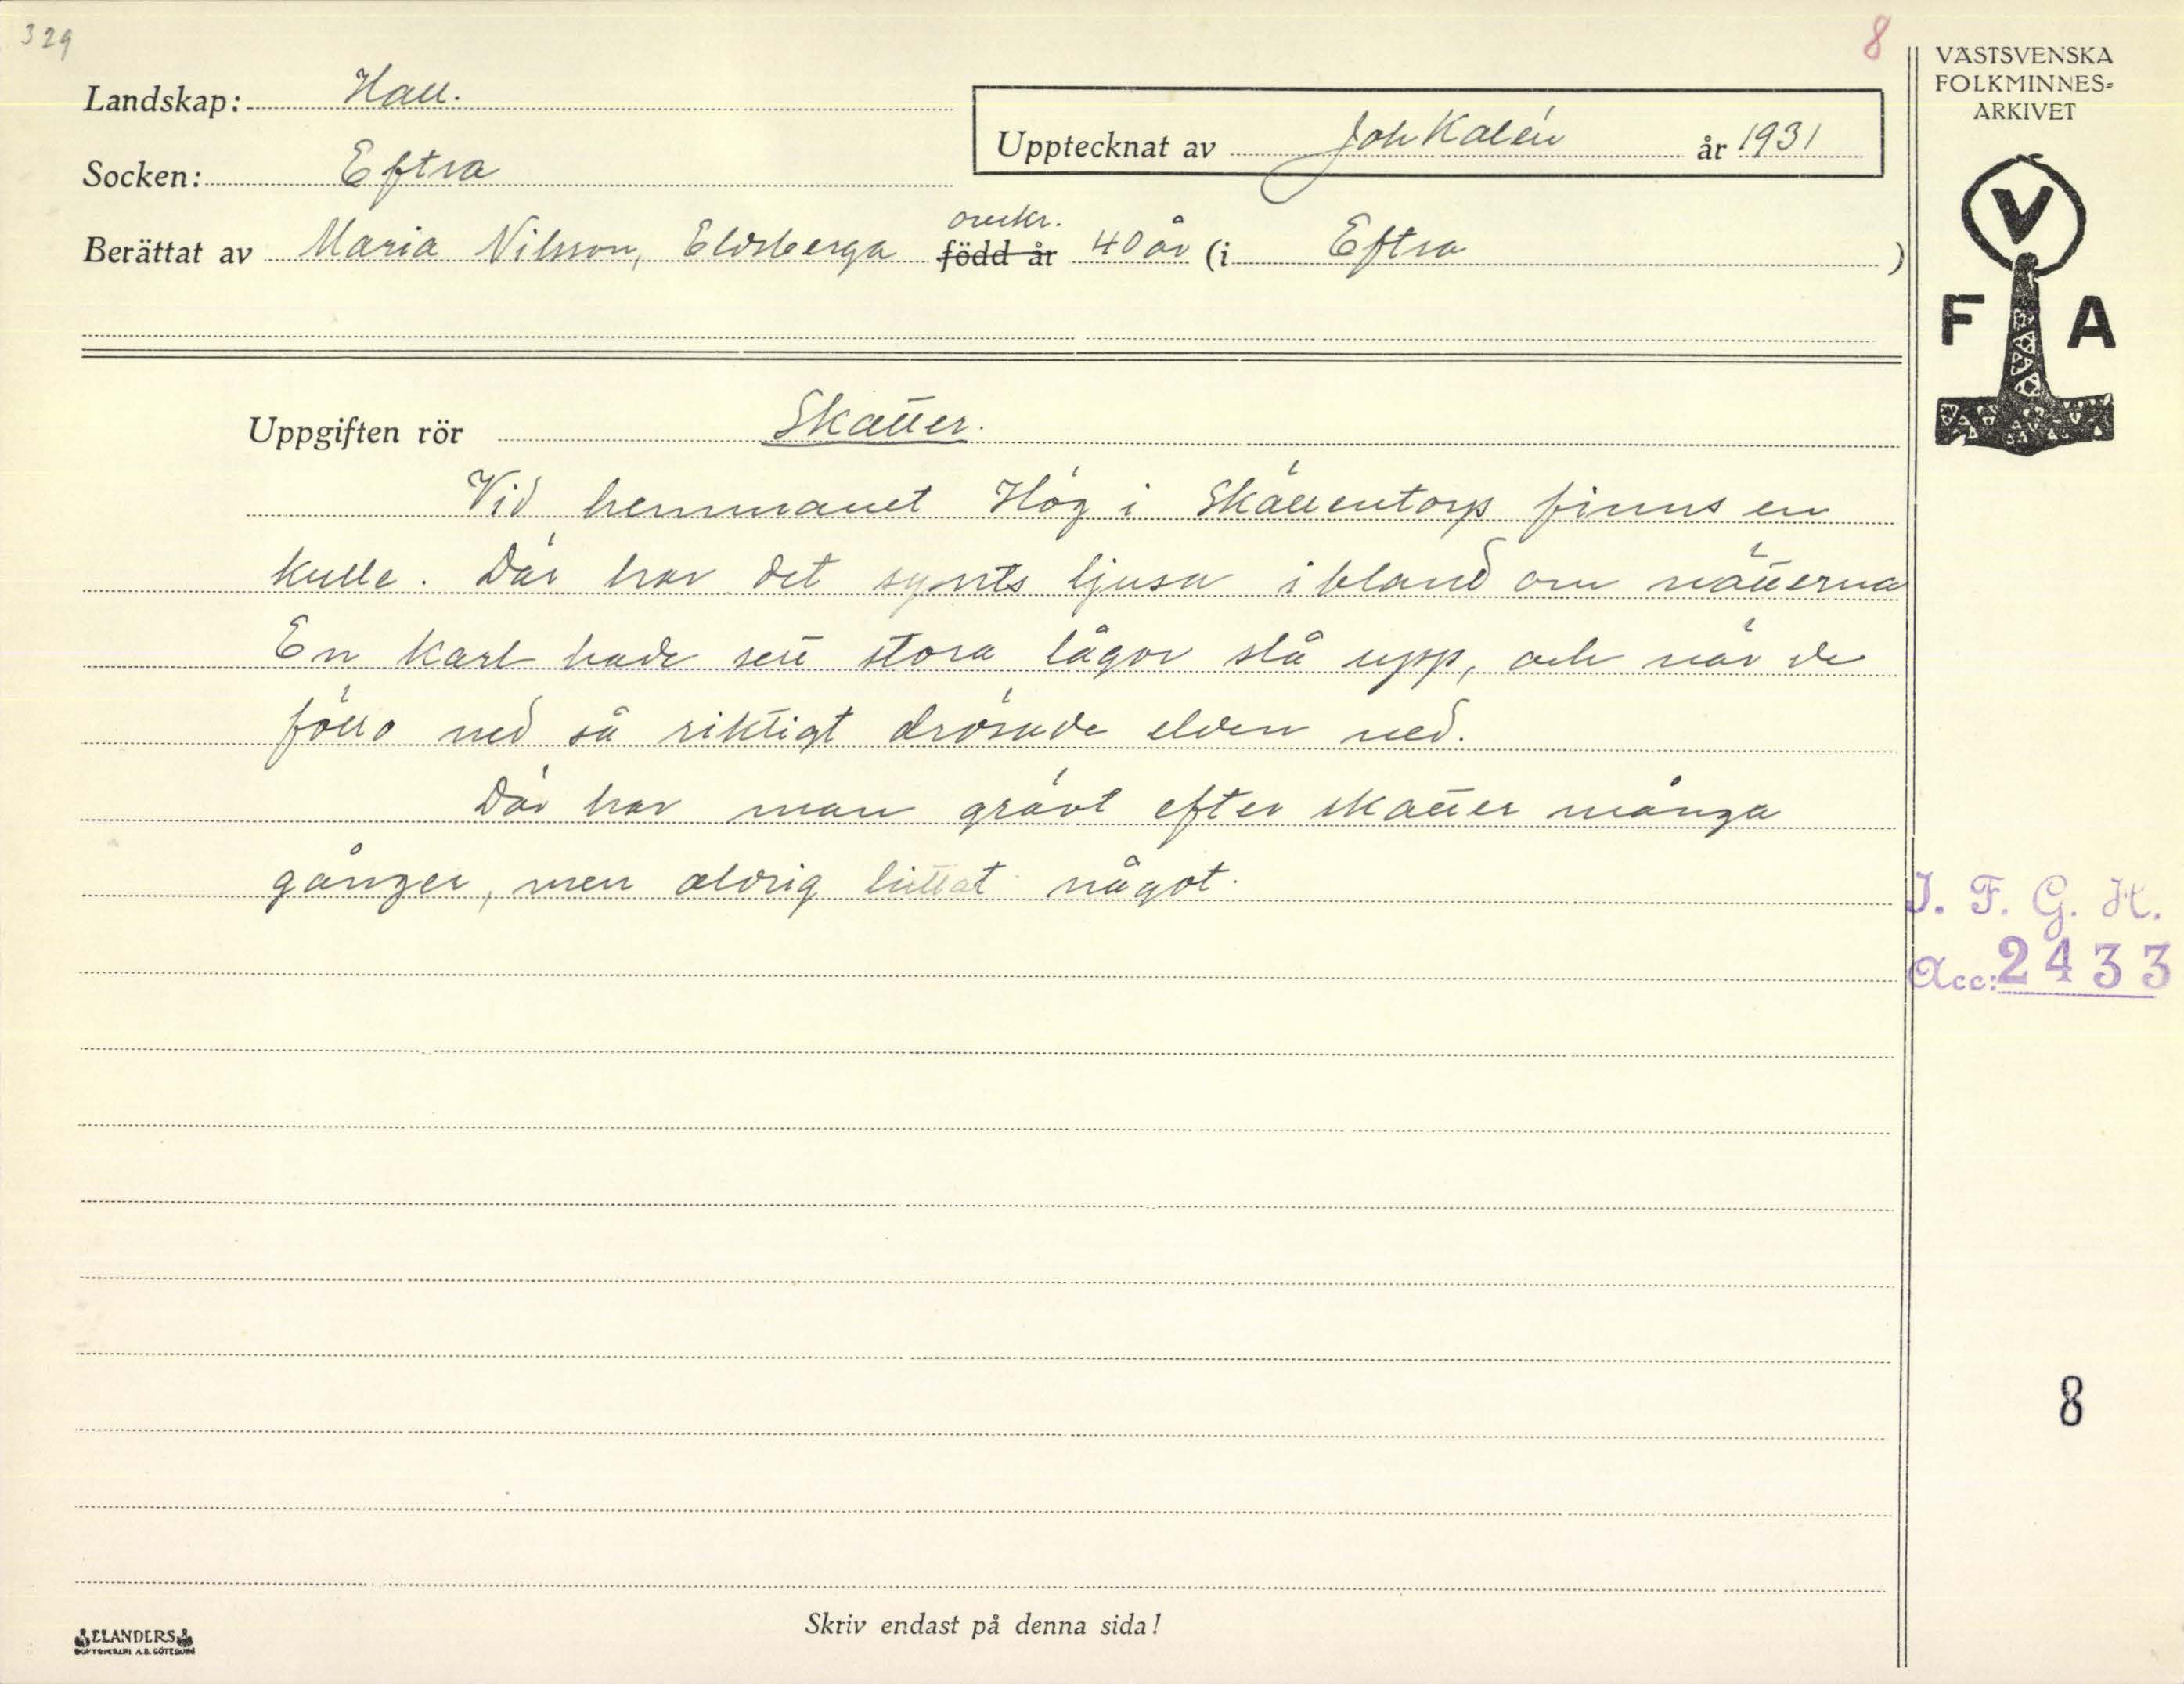 329
8
Landskap: Hall.
Socken: Eftra
Upptecknat av Joh Kalén år 1931
omkr.
Berättat av Maria Nilsson, Eldsberga född år 40 år (i Eftra )
VÄSTSVENSKA
FOLKMINNES=
ARKIVET
V
F A
Uppgiften rör Skatter.
Vid hemmanet Hög i Skällentorp finns en
kulle. Där har det synts ljusa ibland om nätterna
En karl hade sett stora lågor slå upp, och när de
föllo ned så riktigt drösade elden ned.
Där har man grävt efter skatter många
gånger, men aldrig hittat något.
I. F. G. H.
Acc: 2433
8
Skriv endast på denna sida!
ELANDERS
BOKTRYCKERI A.B. GÖTEBORG